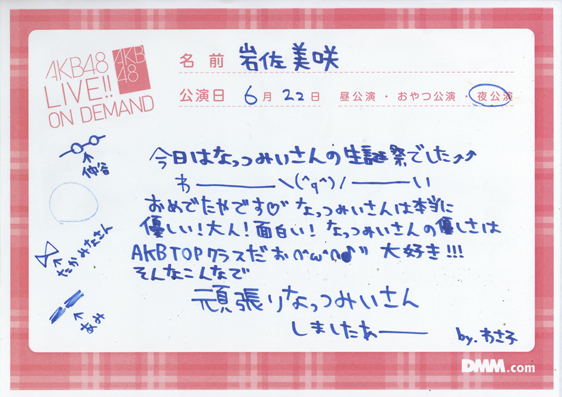 AKB48
LIVE!!
ON DEMAND
AKB
48
名前 岩佐美咲
公演日 6月22日 昼公演・おやつ公演・夜公演
今日はなっつみぃさんの生誕祭でした↑↑
わ――――\(^q^)/――――い
おめでたやです♡ なっつみぃさんは本当に
優しい!大人!面白い!なっつみぃさんの優しさは
AKB TOPクラスだお(^ω^)♪" 大好き!!!
そんなこんなで
頑張りなっつみぃさん
しましたぁ――
by.わさ子
↑
仲谷
↑
たかみなさん
↑
あみ
DMM.com